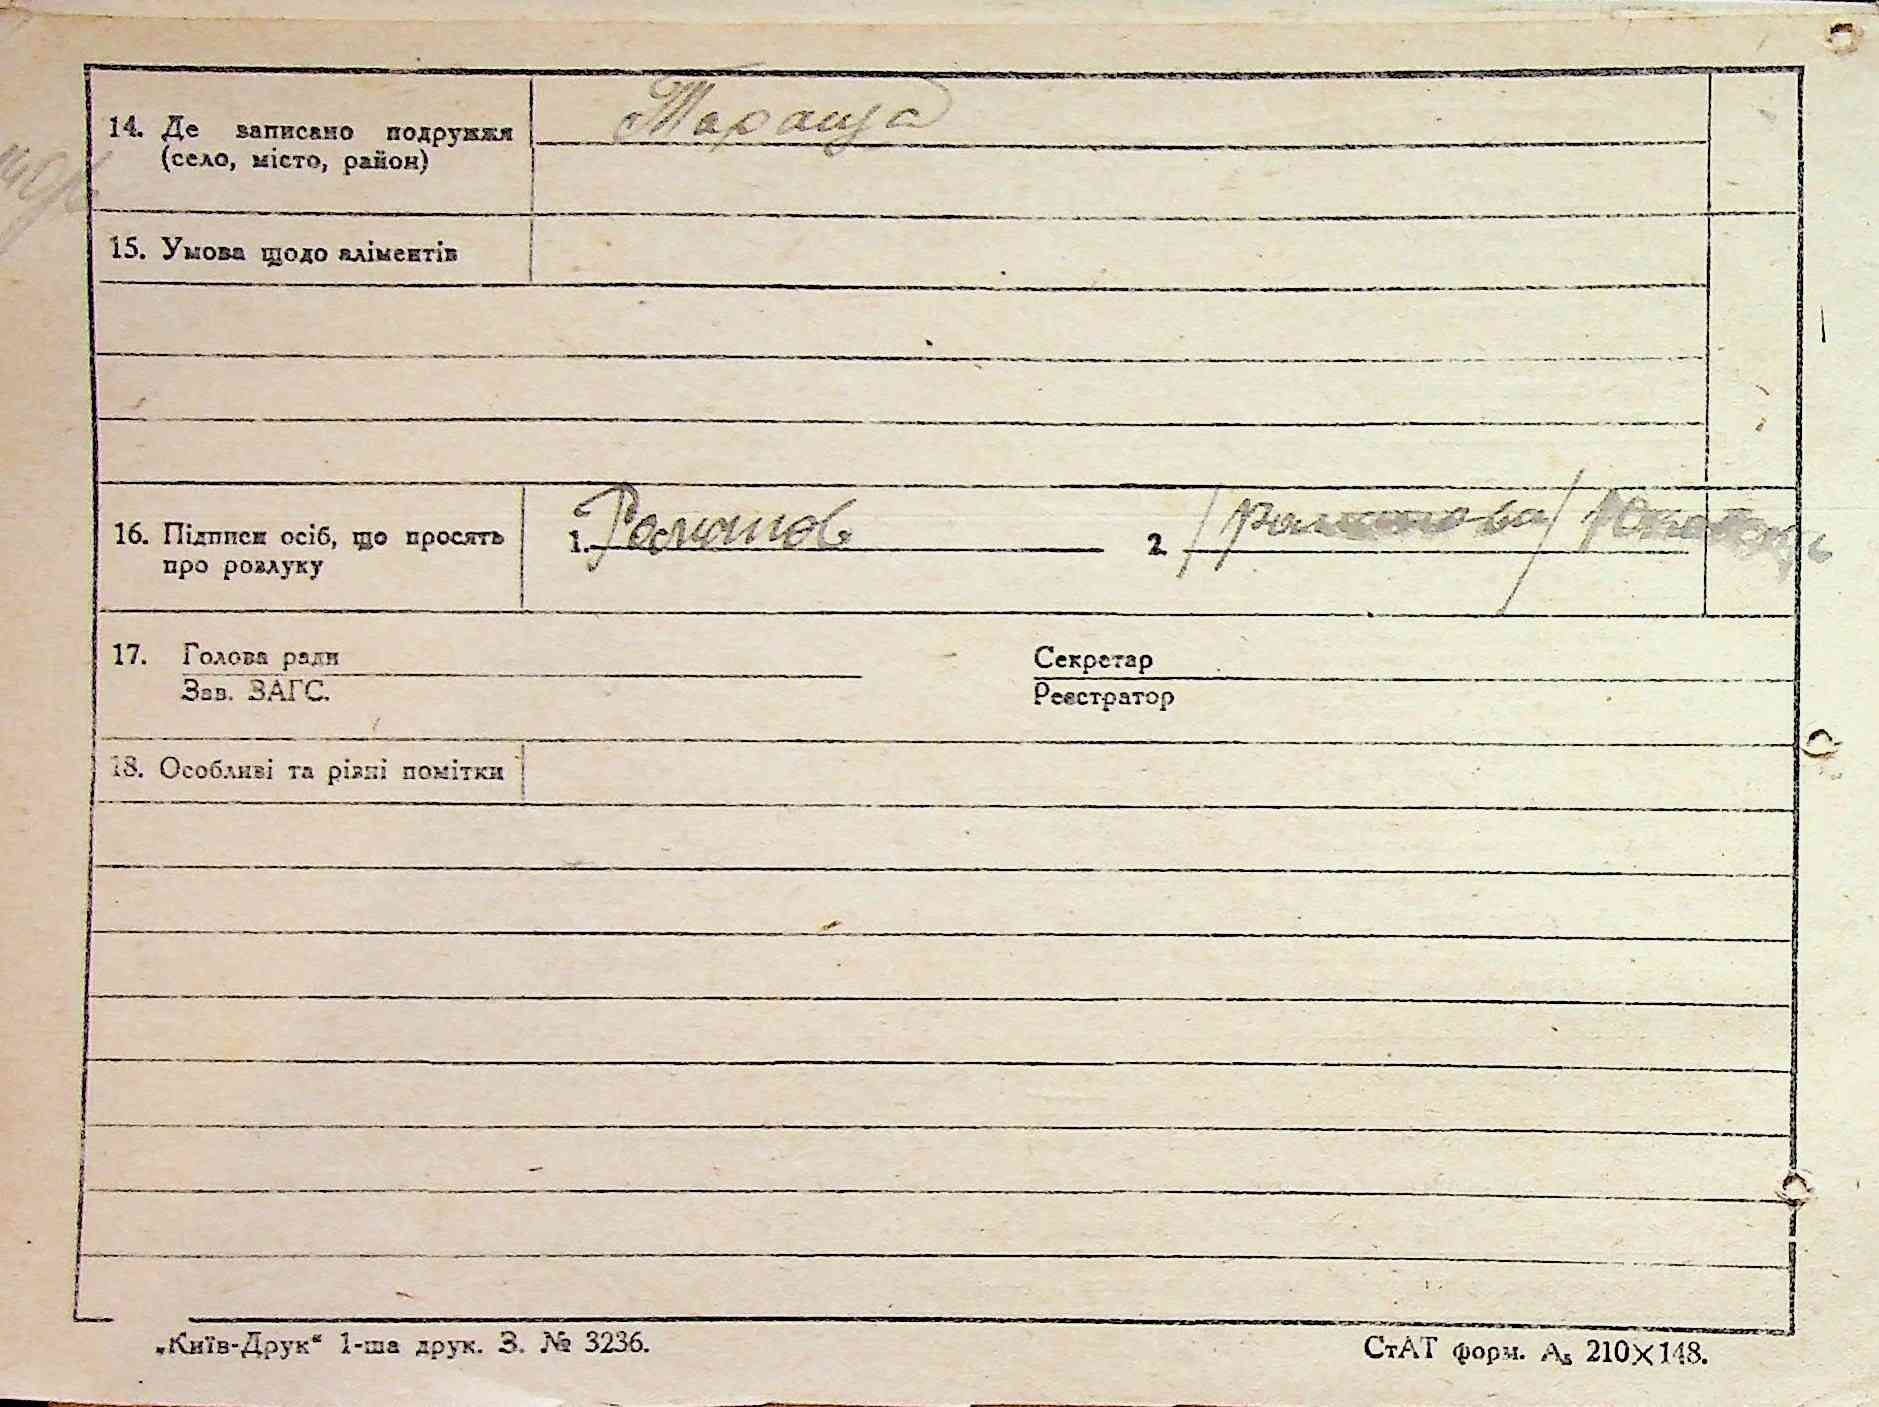 14. Де записано подружжя Тараща
(село, місто, район)
15. Умова щодо аліментів
16. Підписи осіб, що просять 1. Романов 2. /Романова/
про розлуку
17. Голова ради Секретар
Зав. ЗАГС. Реєстратор
18. Особливі та різні помітки
„Київ-Друк“ 1-ша друк. З. № 3236. СтАТ форм. А₅ 210×148.